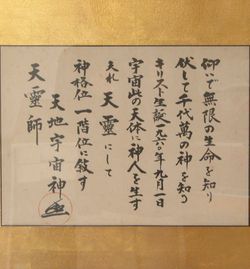 仰いで無限の生命を知り
伏して千代萬の神を知る
キリスト生誕一九六〇年九月一日
宇宙此の天体に神人を生す
夫れ 天霊 にして
神格位一階位に敍す
天地宇宙神
天霊師